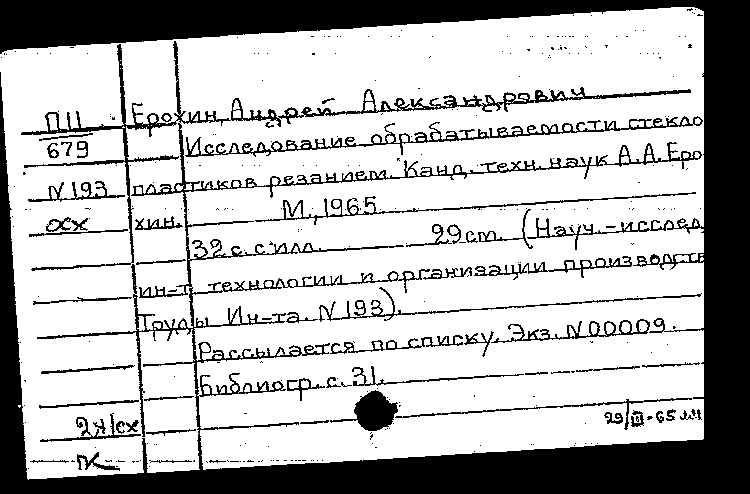 П11 Ерохин, Андрей Александрович
679 Исследование обрабатываемости стекло
N193 пластиков резанием. Канд. техн. наук А.А.Еро
осх хин. М., 1965.
32 с. с илл. 29 см. (Науч.-исслед.
ин-т технологии и организации производств
Труды Ин-та. N 193).
Рассылается по списку. Экз. N00009.
Библиогр. с. 31.
29/III-65